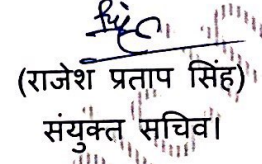 (राजेश प्रताप सिंह)
संयुक्त सचिव।